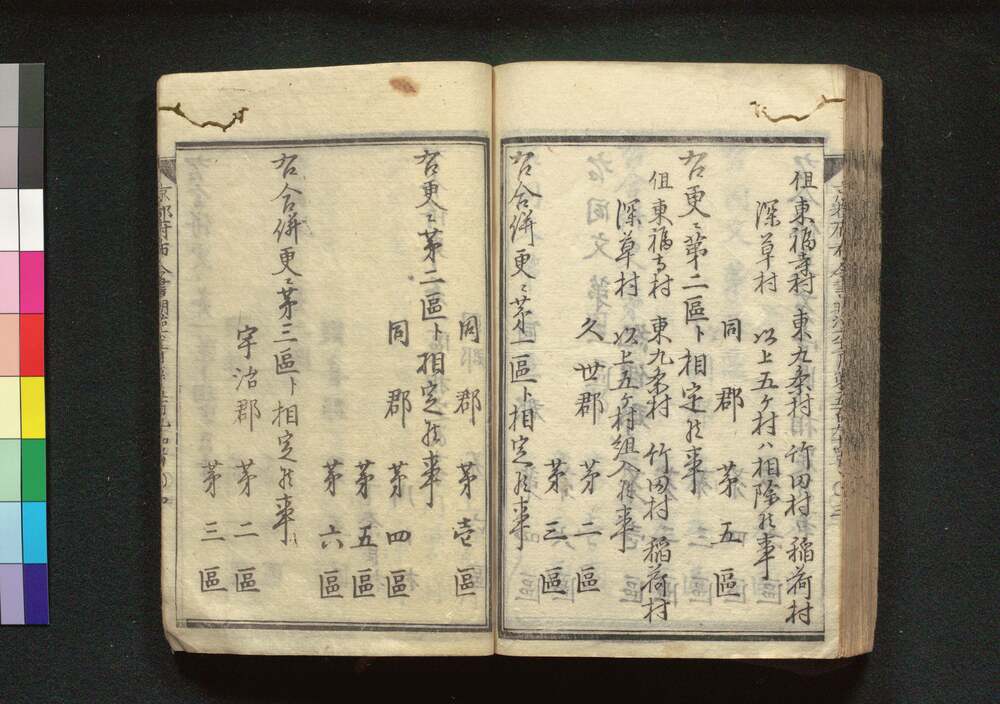 但東福寺村 東九条村 竹田村 稲荷村
深草村 以上五ケ村ハ相除候事
同郡 第五區
右更ニ第二區ト相定候事
但東福寺村 東九条村 竹田村 稲荷村
深草村 以上五ケ村組入候事
久世郡 第二區
第三區
右合併更ニ第一區ト相定候事
同郡 第壱區
右更ニ第二區ト相定候事
同郡 第四區
第五區
第六區
右合併更ニ第三區ト相定候事
宇治郡 第二區
第三區